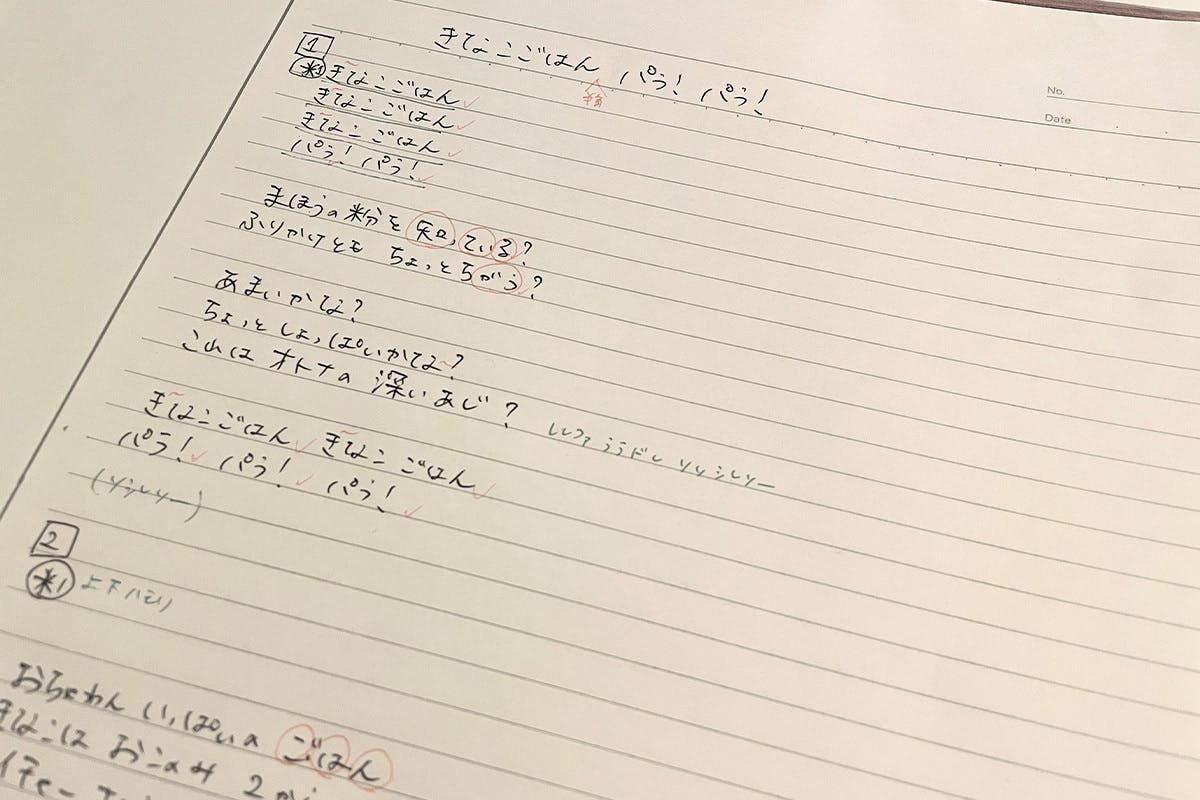 きなこごはん パラ! パラ!
半角
No.
Date
1
*1 きなこごはん
きなこごはん
きなこごはん
パラ! パラ!
まほうの粉を知っている?
ふりかけとも ちょっとちがう?
あまいかな?
ちょっとしょっぱいかな?
これは オトナの 深いあじ?
レレファ ララドレ ソソシレソー
きなこごはん きなこごはん
パラ! パラ! パラ!
(ソシレソー)
2
*1 上下ハモリ
おちゃわん いっぱいの ごはん
きなこは おこのみ 2